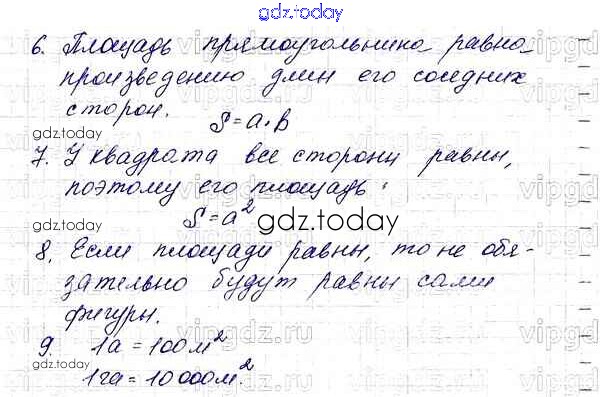 gdz.today
6. Площадь прямоугольника равна
произведению длин его соседних
сторон.
S = a · b
gdz.today
7. У квадрата все стороны равны,
поэтому его площадь:
S = a²
gdz.today
8. Если площади равны, то не обя-
зательно будут равны сами
фигуры.
9. 1а = 100 м²
gdz.today
1га = 10 000 м².